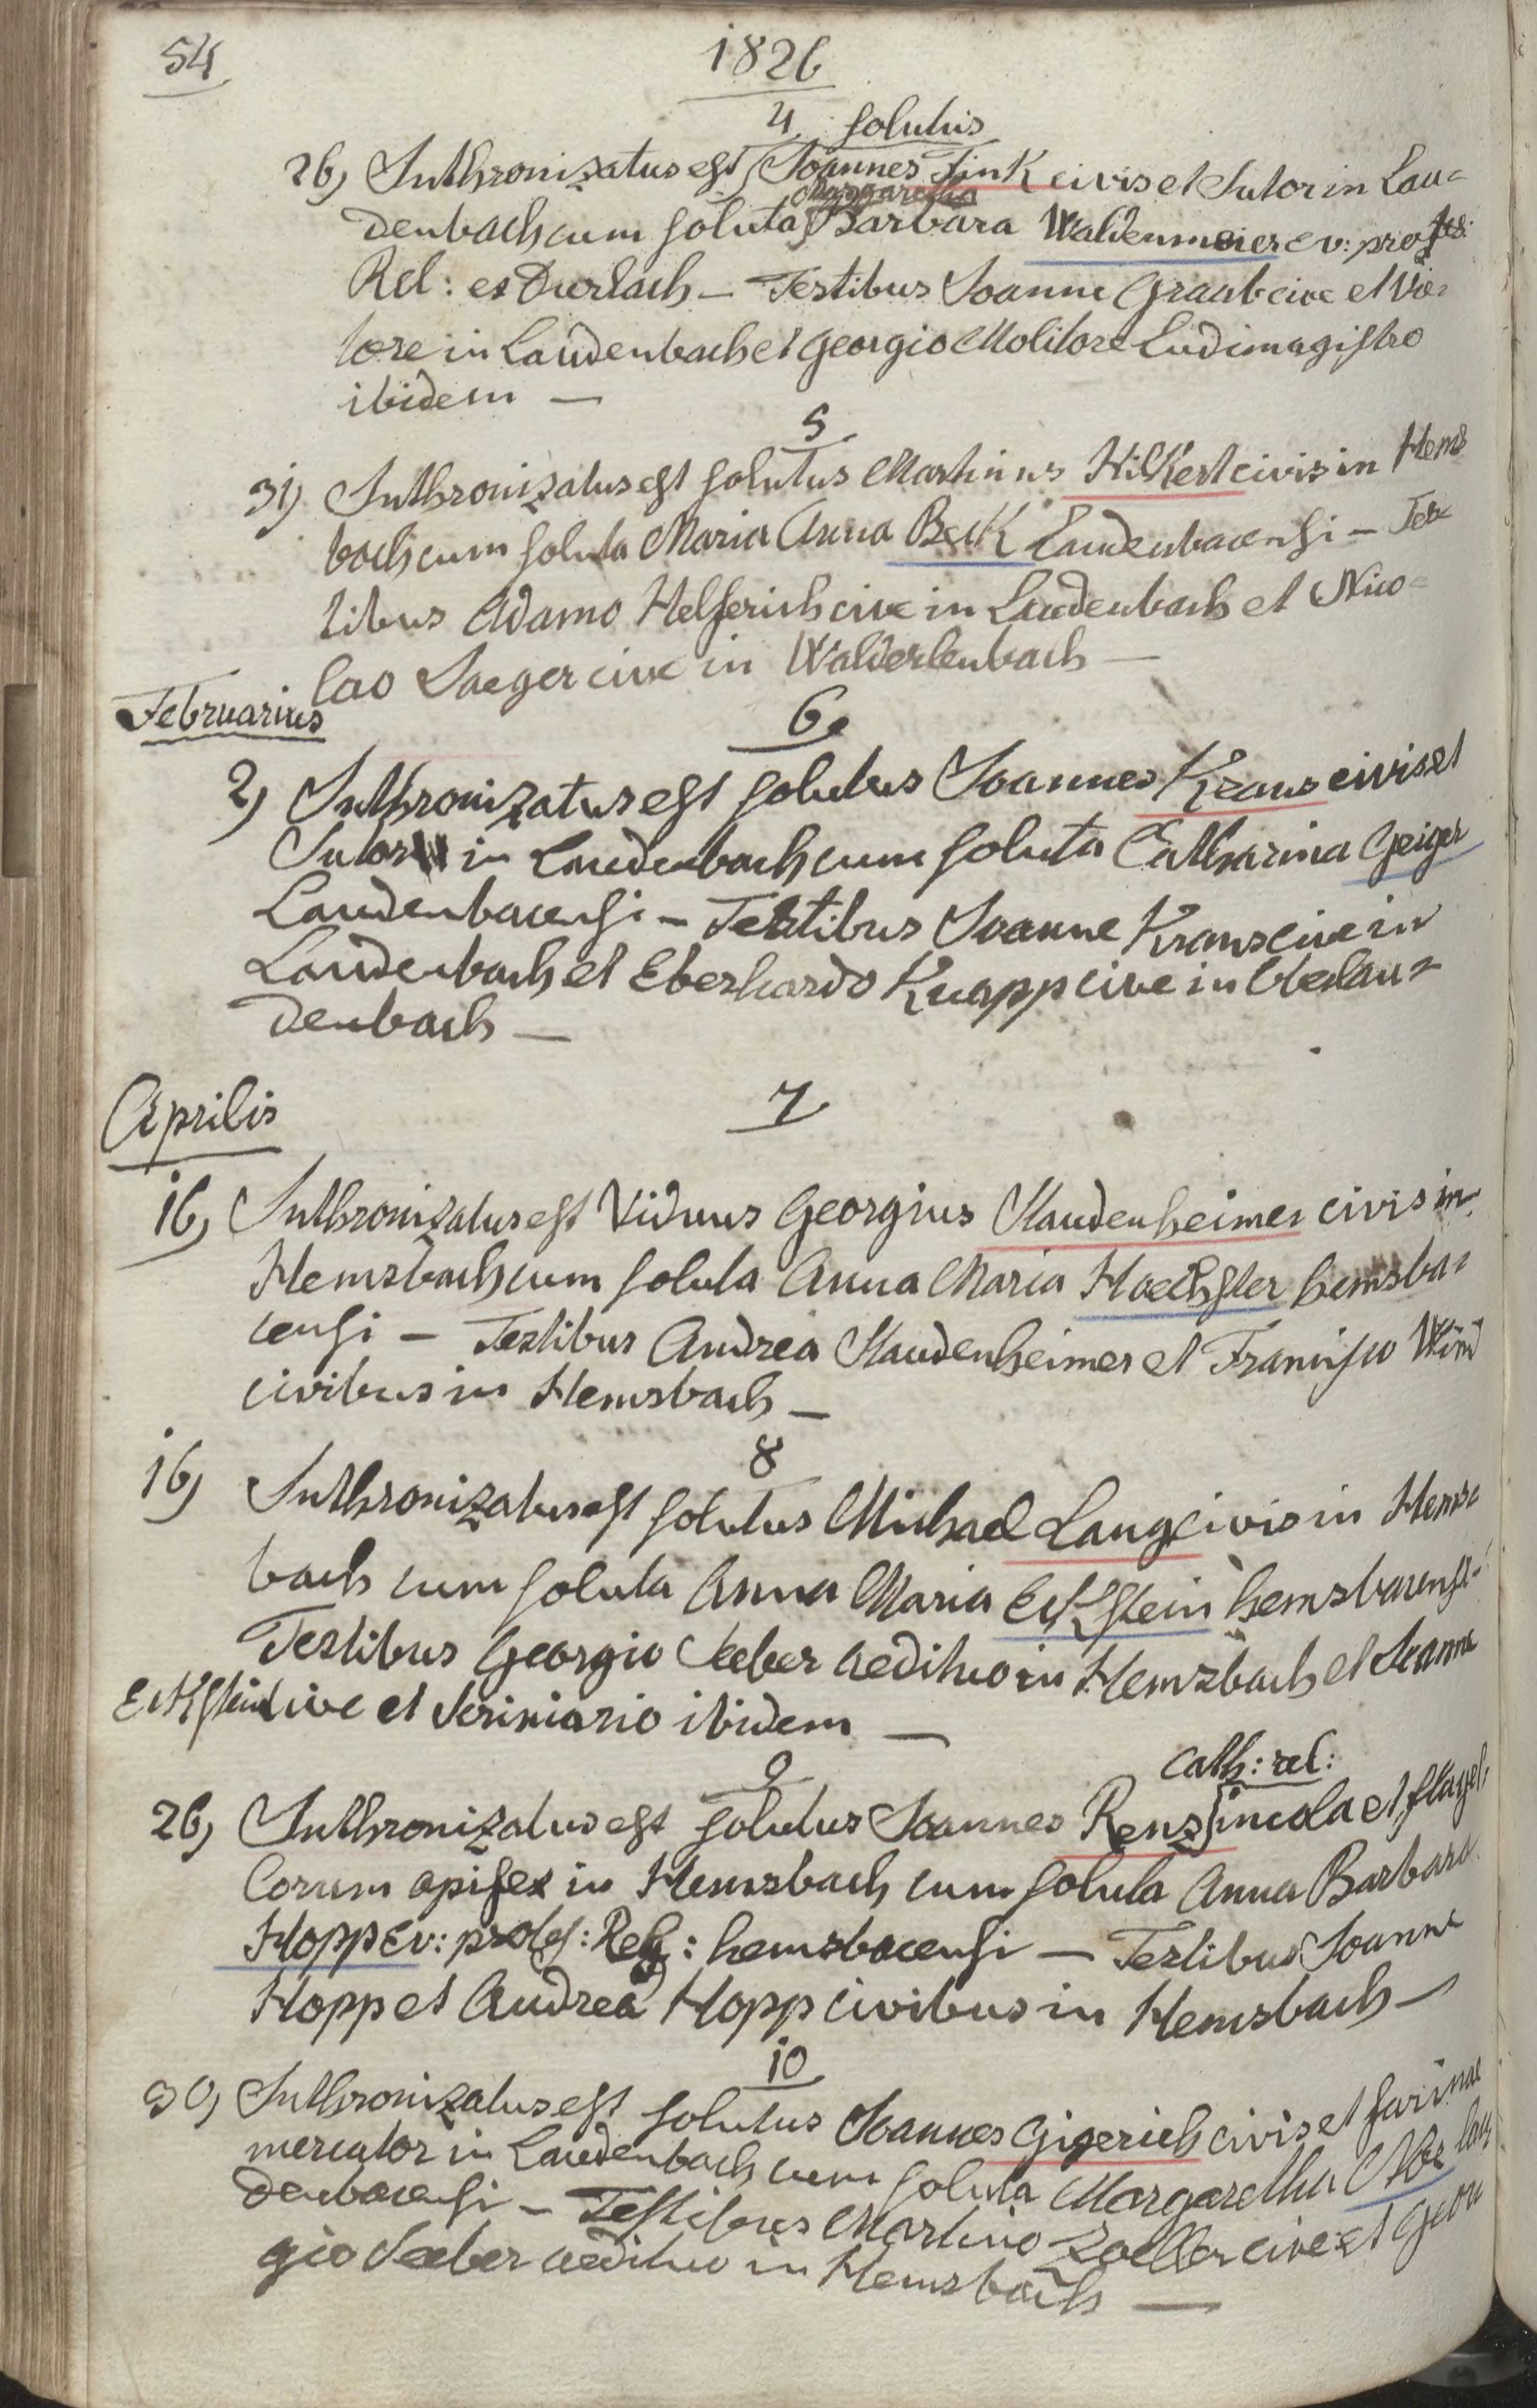 54
1826
4 solutus
26) Inthronizatus est Joannes Fink civis et Sutor in Lau=
Margaretha
denbach cum soluta Barbara Waldenmeier ev: profes:
Rel: ex Durlach — Testibus Joanne Graab cive et Vie=
tore in Laudenbach et Georgio Molitore Ludimagistro
ibidem —
5
31) Inthronizatus est solutus Martinus Hilkert civis in Hems
bach cum soluta Maria Anna Beck Laudenbacensi — Tes=
tibus Adamo Helferich cive in Laudenbach et Nico=
lao Jaeger cive in Walderlenbach —
Februarius
6
2) Inthronizatus est solutus Joannes Kraus civis et
Sutor in Laudenbach cum soluta Catharina Geiger
Laudenbacensi — Testibus Joanne Kraus cive in
Laudenbach et Eberhardo Knapp cive in Oberlau=
denbach —
Aprilis
7
16) Inthronizatus est Viduus Georgius Staudenheimer civis in
Hemsbach cum soluta Anna Maria Hoechster hemsba=
censi — Testibus Andrea Staudenheimer et Francisco
civibus in Hemsbach —
8
16) Inthronizatus est solutus Michael Lang civis in Hems=
bach cum soluta Anna Maria Eckstein hemsbacensi —
Testibus Georgio Seeber aedituo in Hemsbach et Joanne
Eckstein cive et Scriniario ibidem —
9
cath: rel:
26) Inthronizatus est solutus Joannes Renz incola et flagel
lorum opifex in Hemsbach cum soluta Anna Barbara
Hopp Ev: profes: Rel: hemsbacensi — Testibus Joanne
Hopp et Andrea Hopp civibus in Hemsbach —
10
30) Inthronizatus est solutus Joannes Gigerich civis et farinae
mercator in Laudenbach cum soluta Margaretha lau
denbacensi — Testibus Martino Zoeller cive et Geor
gio Seeber aedituo in Hemsbach —